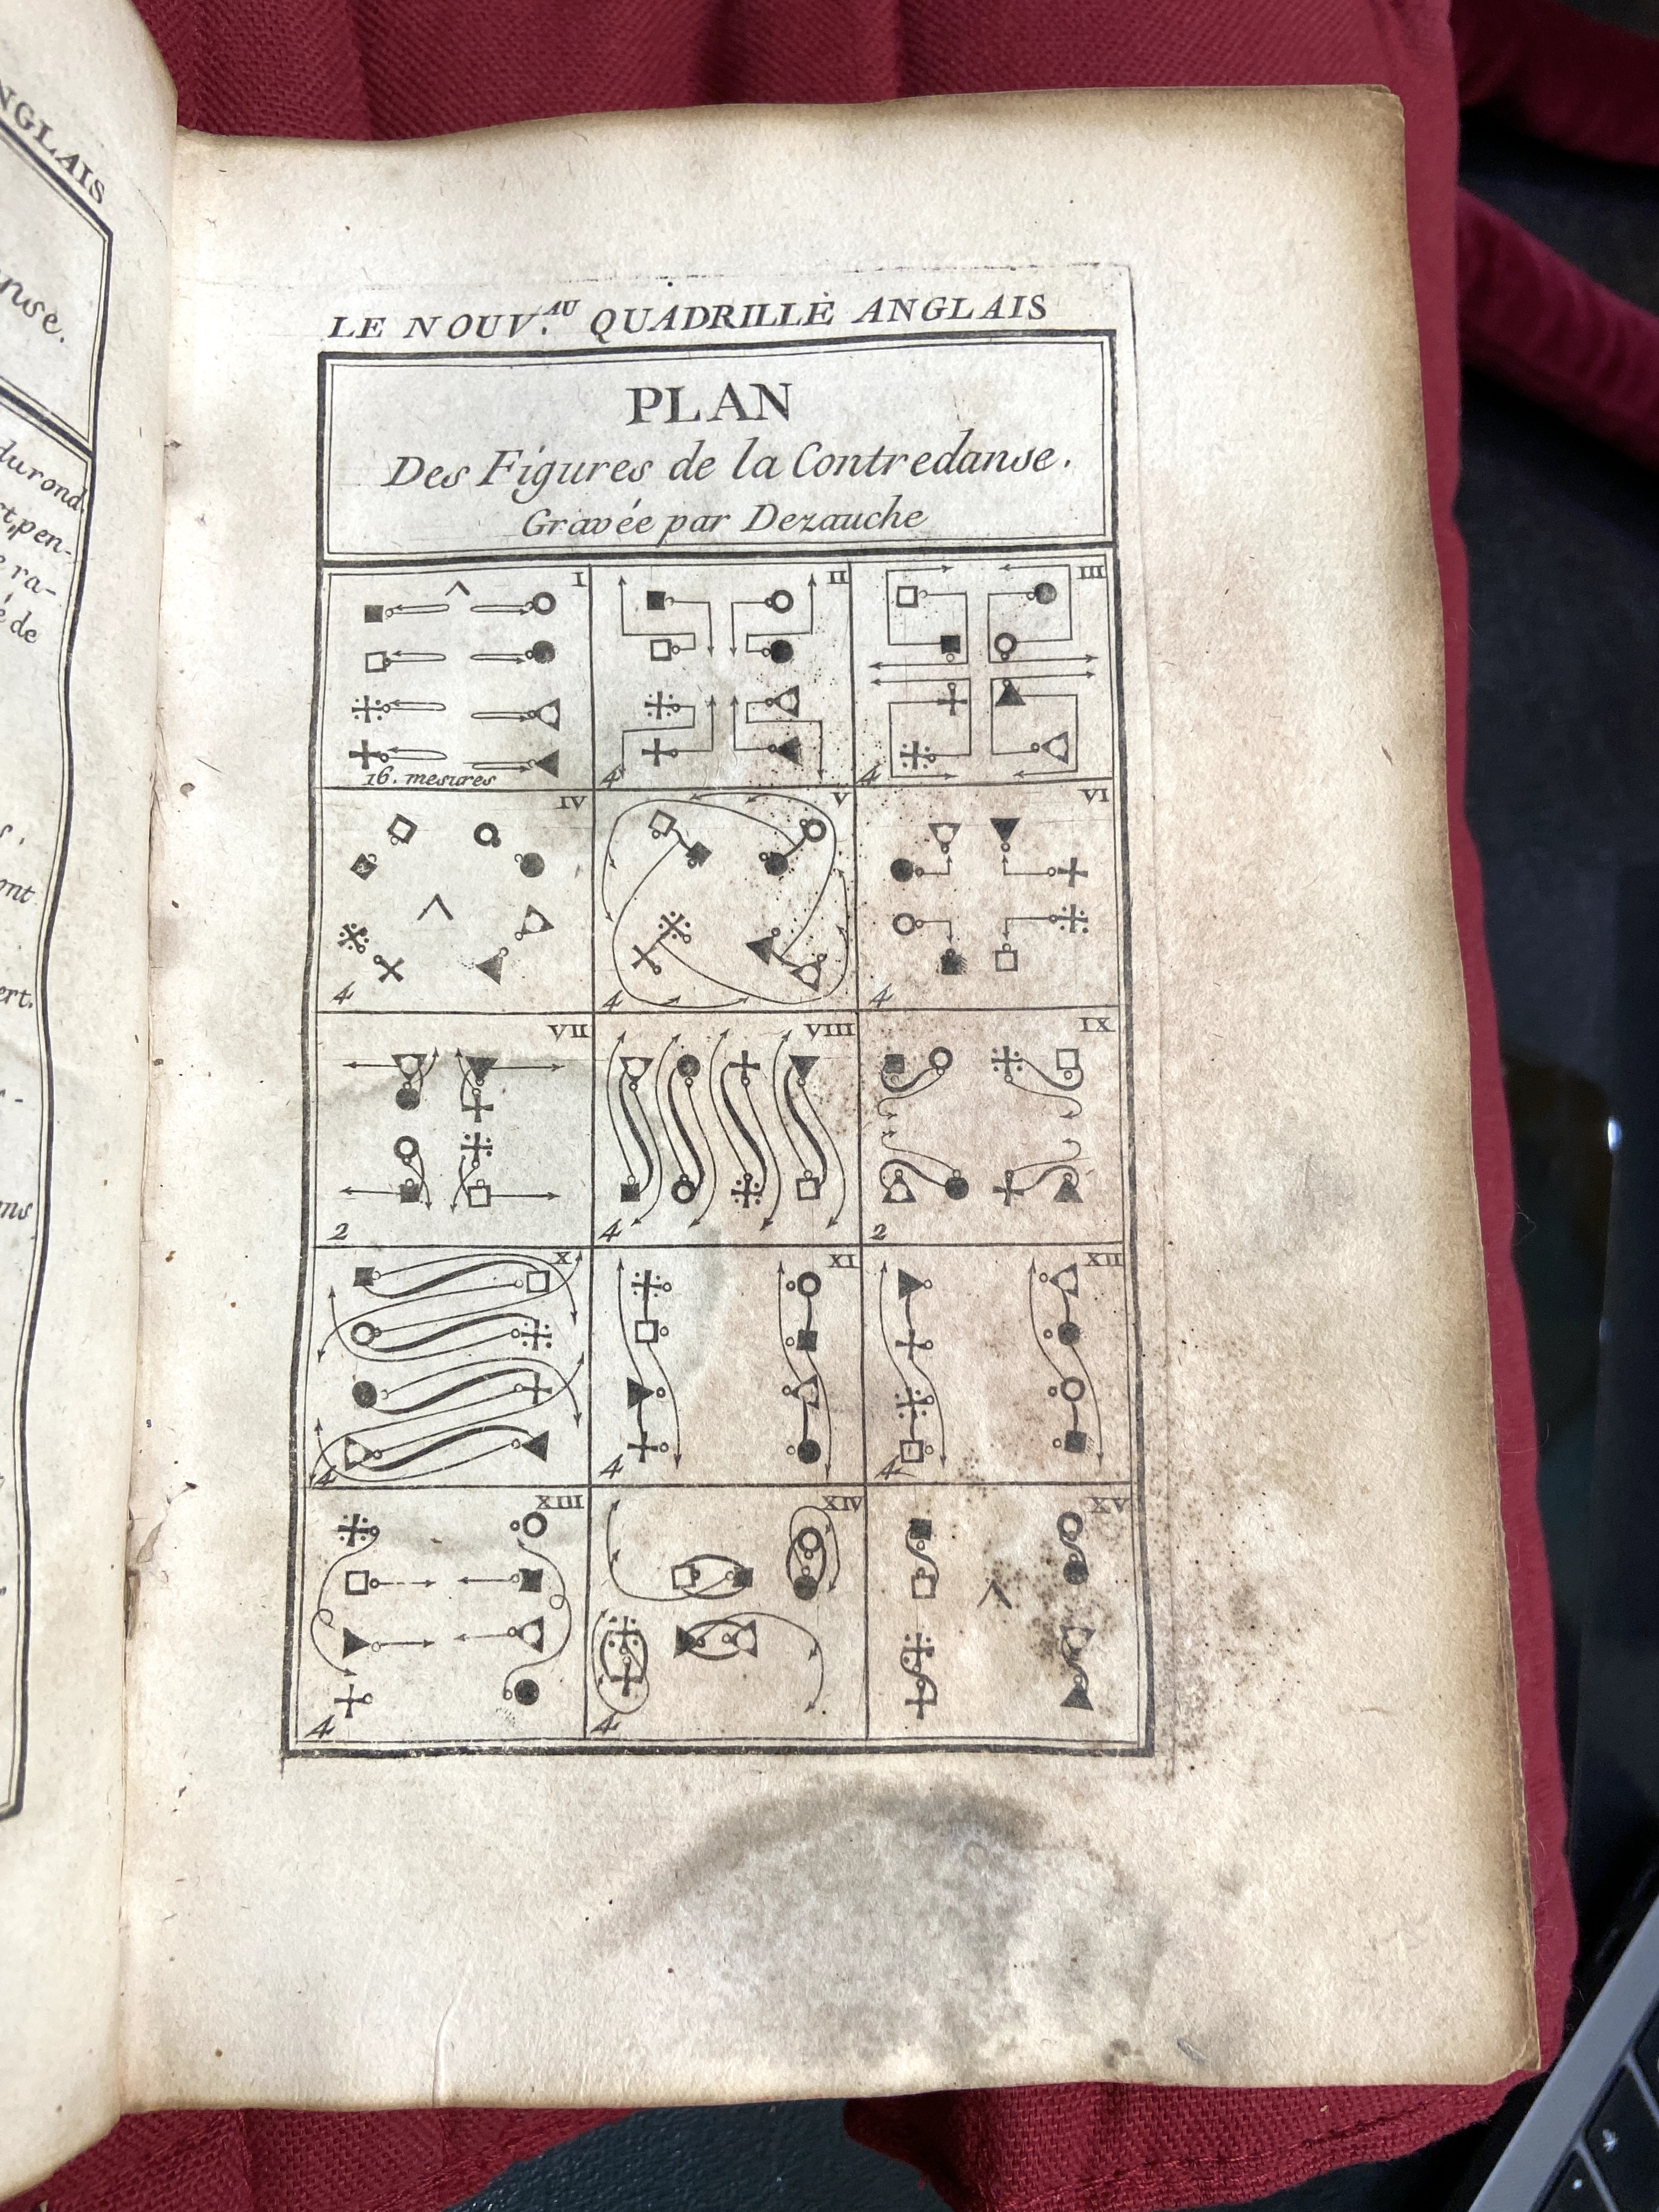 NGLAIS
ruse.
durond
t, pen-
e ra-
é de
ont
ert.
ms
LE NOUV.AU QUADRILLE ANGLAIS
PLAN
Des Figures de la Contredanse.
Gravée par Dezauche
I II III
16. mesures 4 4
IV V VI
4 4 4
VII VIII IX
2 4 2
X XI XII
4 4 4
XIII XIV XV
4 4